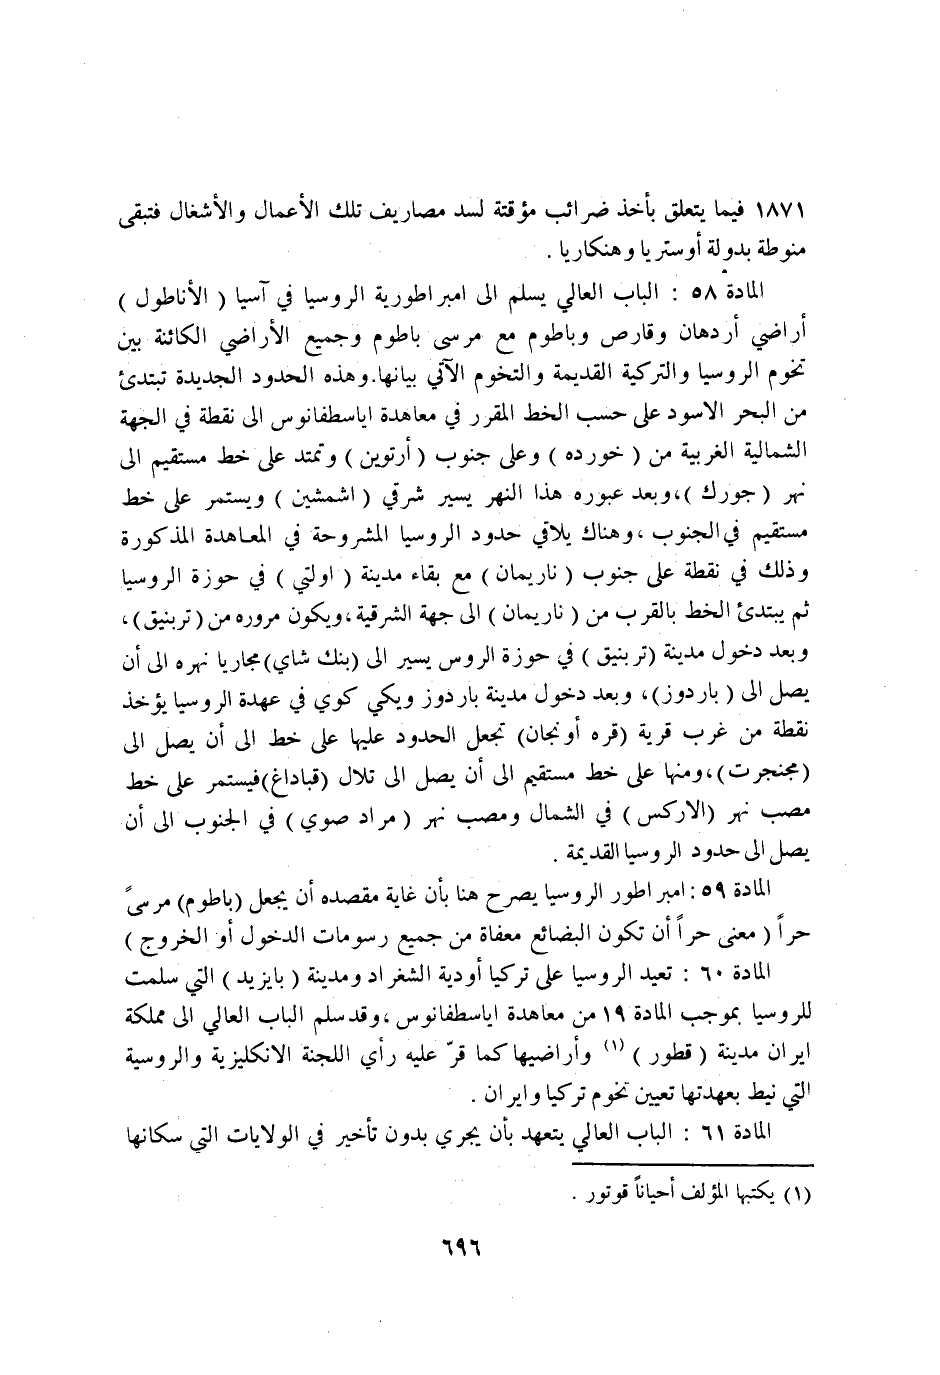 ١٨٧١ فيما يتعلق بأخذ ضرائب مؤقتة لسد مصاريف تلك الأعمال والأشغال فتبقى
منوطة بدولة أوستريا وهنكاريا .
المادة ٥٨ : الباب العالي يسلم الى امبراطورية الروسيا في آسيا ( الأناطول )
أراضي أردهان وقارص وباطوم مع مرسى باطوم وجميع الأراضي الكائنة بين
تخوم الروسيا والتركية القديمة والتخوم الآتي بيانها.وهذه الحدود الجديدة تبتدئ
من البحر الاسود على حسب الخط المقرر في معاهدة اياسطفانوس الى نقطة في الجهة
الشمالية الغربية من ( خورده ) وعلى جنوب ( أرتوين ) وتمتد على خط مستقيم الى
نهر ( جورك )،وبعد عبوره هذا النهر يسير شرقي ( اشمشين ) ويستمر على خط
مستقيم في الجنوب ،وهناك يلاقي حدود الروسيا المشروحة في المعاهدة المذكورة
وذلك في نقطة على جنوب ( ناريمان ) مع بقاء مدينة ( اولتي ) في حوزة الروسيا
ثم يبتدئ الخط بالقرب من ( ناريمان ) الى جهة الشرقية،ويكون مروره من ( تربنيق )،
وبعد دخول مدينة (تربنيق ) في حوزة الروس يسير الى (بنك شاي)مجاريا نهره الى أن
يصل الى ( باردوز )، وبعد دخول مدينة باردوز ويكي كوي في عهدة الروسيا يؤخذ
نقطة من غرب قرية (قره أونجان) تجعل الحدود عليها على خط الى أن يصل الى
(مجنجرت)،ومنها على خط مستقيم الى أن يصل الى تلال (قباداغ)فيستمر على خط
مصب نهر (الاركس ) في الشمال ومصب نهر ( مراد صوي ) في الجنوب الى أن
يصل الى حدود الروسيا القديمة .
المادة ٥٩ : امبراطور الروسيا يصرح هنا بأن غاية مقصده أن يجعل (باطوم) مرسىً
حراً ( معنى حراً أن تكون البضائع معفاة من جميع رسومات الدخول أو الخروج )
المادة ٦٠ : تعيد الروسيا على تركيا أودية الشغراد ومدينة ( بايزيد ) التي سلمت
للروسيا بموجب المادة ١٩ من معاهدة اياسطفانوس ،وقد سلم الباب العالي الى مملكة
ايران مدينة ( قطور ) (١) وأراضيها كما قرّ عليه رأي اللجنة الانكليزية والروسية
التي نيط بعهدتها تعيين تخوم تركيا وايران .
المادة ٦١ : الباب العالي يتعهد بأن يجري بدون تأخير في الولايات التي سكانها
(١) يكتبها المؤلف أحياناً قوتور .
٦٩٦